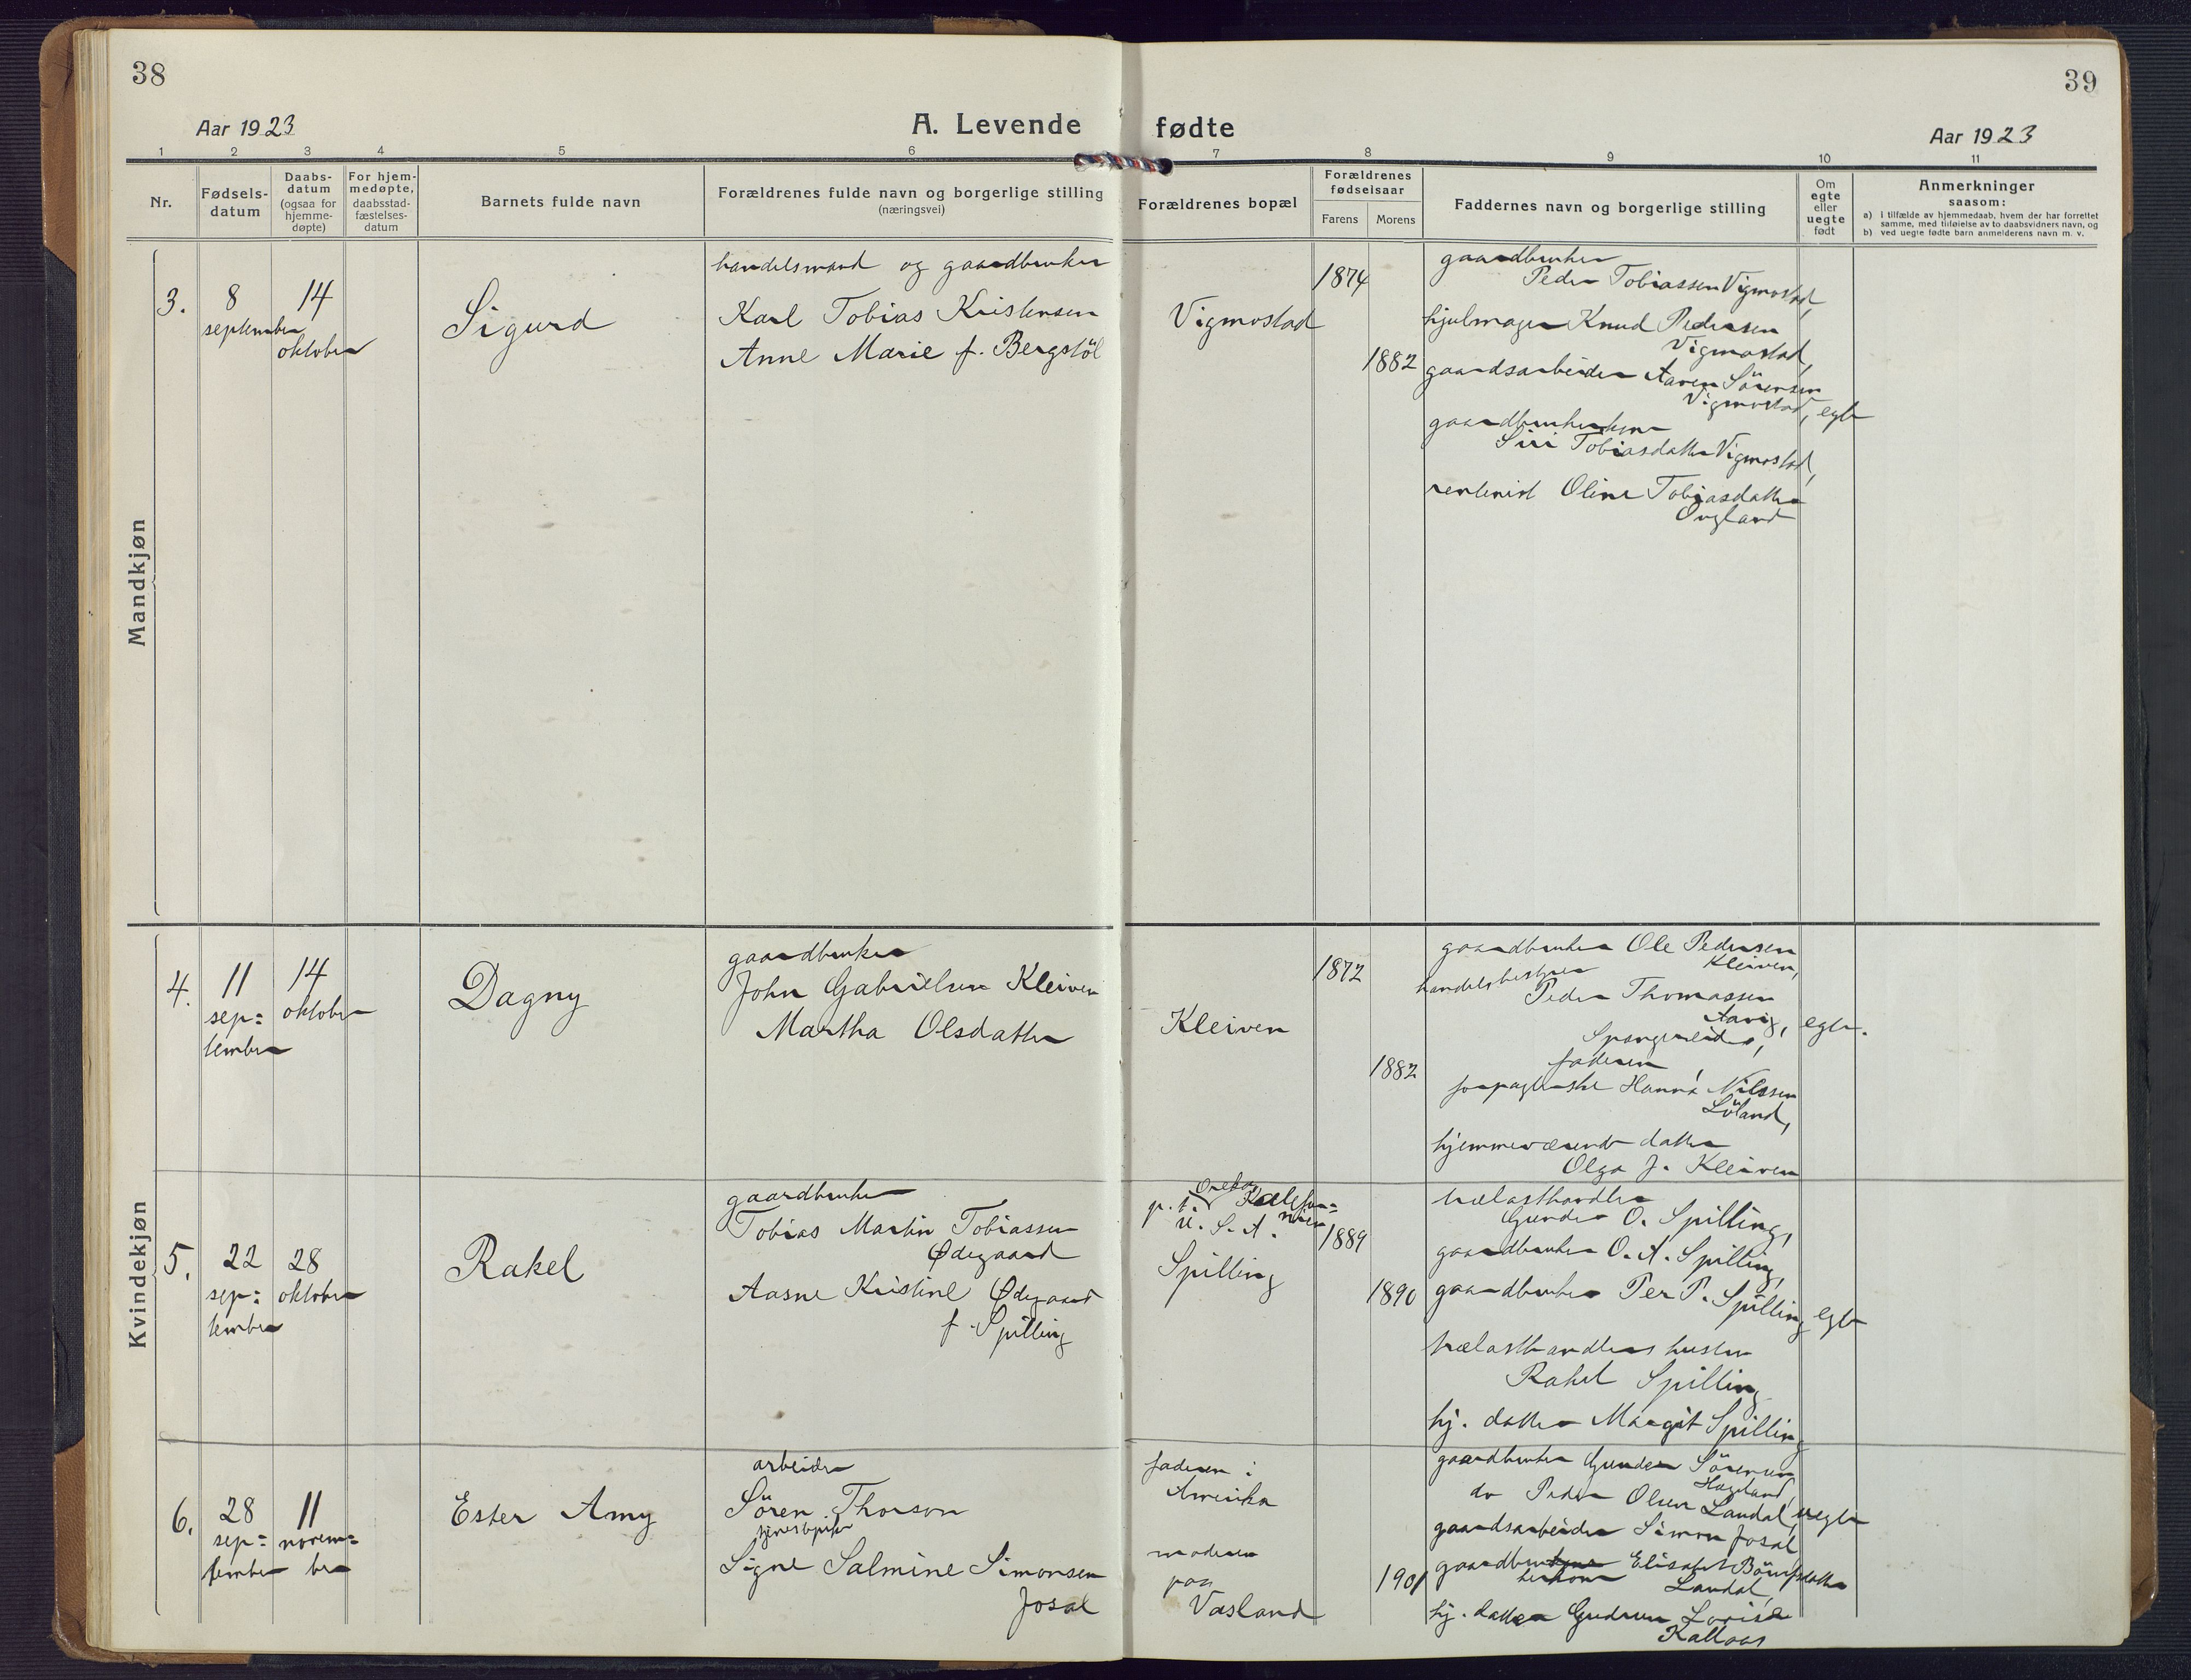 38
39
Aar 1923
A. Levende fødte
Aar 1923
1 2 3 4 5 6 7 8 9 10 11
Nr.
Fødsels-
datum
Daabs-
datum
(ogsaa for
hjemme-
døpte)
For hjem-
medøpte,
daabsstad-
fæstelses-
datum
Barnets fulde navn
Forældrenes fulde navn og borgerlige stilling
(næringsvei)
Forældrenes bopæl
Forældrenes
fødselsaar
Farens Morens
Faddernes navn og borgerlige stilling
Om
egte
eller
uegte
født
Anmerkninger
saasom:
a) I tilfælde av hjemmedaab, hvem der har forrettet
samme, med tilføielse av to daabsvidners navn, og
b) ved uegte fødte barn anmelderens navn m. v.
Mandkjøn
3.
8
september
14
oktober
Sigurd
handelsmand og gaardbruker
Karl Tobias Kristensen
Anne Marie f. Bergstöl
Vigmostad
1874
1882
gaardbruker
Peder Tobiassen Vigmostad,
hjulmager Knud Pedersen
Vigmostad,
gaardsarbeider Aanen Sörensen
Vigmostad,
gaardbrukerkone
Siri Tobiasdatter Vigmostad,
rentenist Oline Tobiasdatter
egte
Kvindekjøn
4.
11
sep=
tember
14
oktober
Dagny
gaardbruker
John Gabrielsen Kleiven
Martha Olsdatter
Kleiven
1872
1882
gaardbruker Ole Pedersen
Kleiven,
handelsbestyrer
Peder Thomassen
Aavig,
Spangereid,
faderen
Hanna Nilssen
Löland,
hjemmeværende datter
Olga J. Kleiven
egte.
5.
22
sep=
tember
28
oktober
Rakel
gaardbruker
Tobias Martin Tobiassen
Ødegaard
Aasne Kristine Ødegaard
f. Spilling
p. t.
U. S. A.
Spilling
1889
1890
trælasthandler
Gunder O. Spilling,
gaardbruker O. A. Spilling,
gaardbruker Per P. Spilling
trælasthandlers hustru
Rakel Spilling
hj. datter Margit Spilling
egte
6.
28
sep=
tember
11
novem=
ber
Ester Amy
arbeider
Sören Thorson
tjenestepike
Signe Salmine Simonsen
Josal
faderen i
Amerika
moderen
paa
Vasland
1901
gaardbruker Gunder Sörensen
Hageland,
do Peder Olsen Landal,
gaardsarbeider Simon Josal
Landal,
hj. datter Gudrun Lovise
Kallaas
uegte